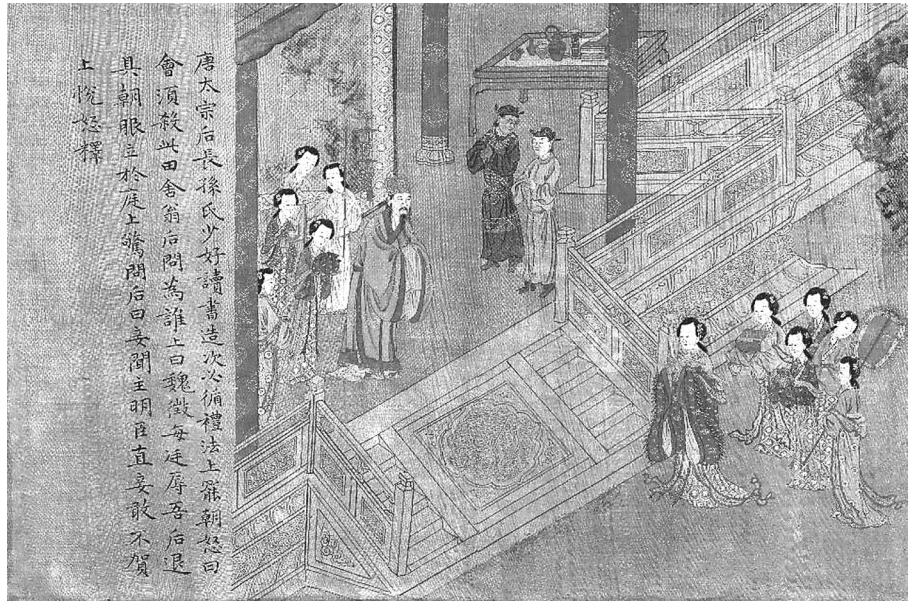 唐太宗后長孫氏少好讀書造次必循禮法上罷朝怒曰
會須殺此田舍翁后問為誰上曰魏徵每廷辱吾后退
具朝服立於庭上驚問后曰妾聞主明臣直妾敢不賀
上悅怒釋